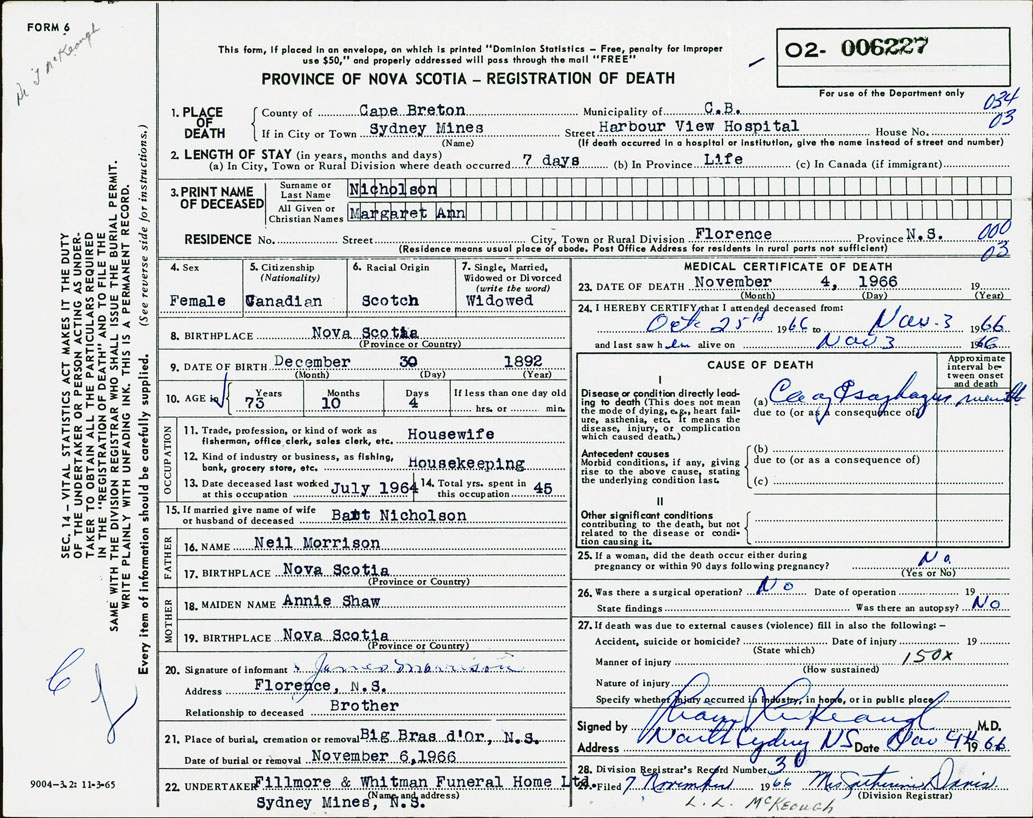 FORM 6
This form, if placed in an envelope, on which is printed "Dominion Statistics – Free, penalty for improper
use $50," and properly addressed will pass through the mail "FREE"
PROVINCE OF NOVA SCOTIA – REGISTRATION OF DEATH
02- 006227
For use of the Department only
034
03
1. PLACE OF DEATH
County of Cape Breton Municipality of C.B.
If in City or Town Sydney Mines Street Harbour View Hospital House No.
(Name) (If death occurred in a hospital or institution, give the name instead of street and number)
2. LENGTH OF STAY (in years, months and days)
(a) In City, Town or Rural Division where death occurred 7 days (b) In Province Life (c) In Canada (if immigrant)
3. PRINT NAME OF DECEASED
Surname or Last Name Nicholson
All Given or Christian Names Margaret Ann
RESIDENCE No. Street City, Town or Rural Division Florence Province N.S.
(Residence means usual place of abode. Post Office Address for residents in rural parts not sufficient)
000
03
4. Sex
Female
5. Citizenship
(Nationality)
Canadian
6. Racial Origin
Scotch
7. Single, Married,
Widowed or Divorced
(write the word)
Widowed
8. BIRTHPLACE Nova Scotia
(Province or Country)
9. DATE OF BIRTH December 30 1892
(Month) (Day) (Year)
10. AGE in Years 73 Months 10 Days 4 If less than one day old hrs. or min.
OCCUPATION
11. Trade, profession, or kind of work as
fisherman, office clerk, sales clerk, etc. Housewife
12. Kind of industry or business, as fishing,
bank, grocery store, etc. Housekeeping
13. Date deceased last worked
at this occupation July 1964
14. Total yrs. spent in
this occupation 45
15. If married give name of wife
or husband of deceased Bart Nicholson
FATHER
16. NAME Neil Morrison
17. BIRTHPLACE Nova Scotia
(Province or Country)
MOTHER
18. MAIDEN NAME Annie Shaw
19. BIRTHPLACE Nova Scotia
(Province or Country)
20. Signature of informant James Morrison
Address Florence, N.S.
Relationship to deceased Brother
21. Place of burial, cremation or removal Big Bras d'Or, N.S.
Date of burial or removal November 6,1966
22. UNDERTAKER Fillmore & Whitman Funeral Home Ltd
(Name and address)
Sydney Mines, N.S.
MEDICAL CERTIFICATE OF DEATH
23. DATE OF DEATH November 4, 1966 19
(Month) (Day) (Year)
24. I HEREBY CERTIFY that I attended deceased from:
Oct 25th 1966 to Nov. 3 1966
and last saw h er alive on Nov 3 1966
CAUSE OF DEATH
Approximate
interval be-
tween onset
and death
I
Disease or condition directly lead-
ing to death (This does not mean
the mode of dying, e.g., heart fail-
ure, asthenia, etc. It means the
disease, injury, or complication
which caused death.)
(a) Ca of Esophagus months
due to (or as a consequence of)
Antecedent causes
Morbid conditions, if any, giving
rise to the above cause, stating
the underlying condition last.
(b)
due to (or as a consequence of)
(c)
II
Other significant conditions
contributing to the death, but not
related to the disease or condi-
tion causing it.
25. If a woman, did the death occur either during
pregnancy or within 90 days following pregnancy? No.
(Yes or No)
26. Was there a surgical operation? No Date of operation 19
State findings Was there an autopsy? No
27. If death was due to external causes (violence) fill in also the following: –
Accident, suicide or homicide? Date of injury 19
(State which)
Manner of injury 150X
(How sustained)
Nature of injury
Specify whether injury occurred in industry, in home, or in public place
Signed by M.D.
Address North Sydney NS Date Nov 4th 1966
28. Division Registrar's Record Number 30
29. Filed 7 November 1966 Mrs Catherine Davis
(Division Registrar)
L. L. McKeough
SEC. 14 – VITAL STATISTICS ACT MAKES IT THE DUTY
OF THE UNDERTAKER OR PERSON ACTING AS UNDER-
TAKER TO OBTAIN ALL THE PARTICULARS REQUIRED
IN THE "REGISTRATION OF DEATH" AND TO FILE THE
SAME WITH THE DIVISION REGISTRAR WHO SHALL ISSUE THE BURIAL PERMIT.
WRITE PLAINLY WITH UNFADING INK. THIS IS A PERMANENT RECORD.
Every item of information should be carefully supplied. (See reverse side for instructions.)
9004–3.2: 11-3-65